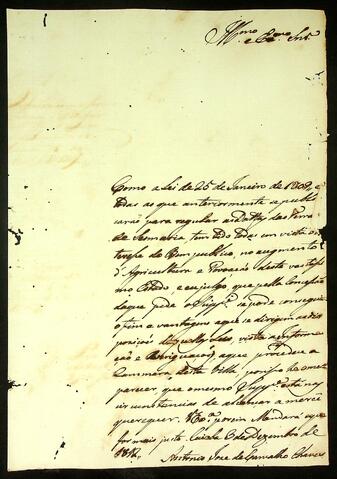 Illmo
e Exmo Snr
Como a Lei de 25 de Janeiro de 1809, e
todas as que anteriormente se publi
carão para regular as Datas das Terras
de Sesmaria tem tido todas em vista o in
teresse do Bem publico, no augmento
d'Agricultura e Povoação deste vastissi
mo Estado, e eu julgo que pella Concessão
da que pede o Suppe se pode conseguir
o fim e vantagens a que se dirigem as dis
posições daquellas Leis, vista a informa
ção e Averiguação a que procedeu a
Cammara desta Villa, por isso he o meu
parecer que o mesmo Suppe está nas
circunstancias de alcançar a mercê
que requer. V. Exa porem Mandará o que
for mais justo. 6 de Dezembro de
Antonio Jose de Carvalho Chaves